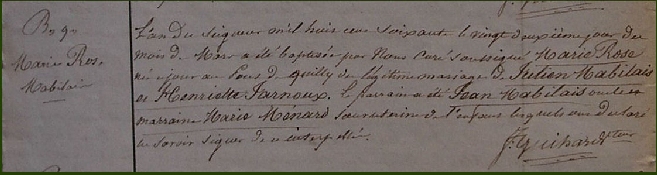 B. 90
Marie Rose
Mabilais
L'an du seigneur mil huit cent soixante le vingt deuxième jour du
mois de Mars a été baptisée par Nous Curé soussigné Marie Rose
née ce jour au bourg de quilly du légitime mariage de Julien Mabilais
et Henriette Jarnoux. Le parrain a été Jean Mabilais oncle et
marraine Marie Ménard soeur uterine de l'enfant lesquels ont déclaré
ne savoir signer de ce interpellés.
J. Guihard